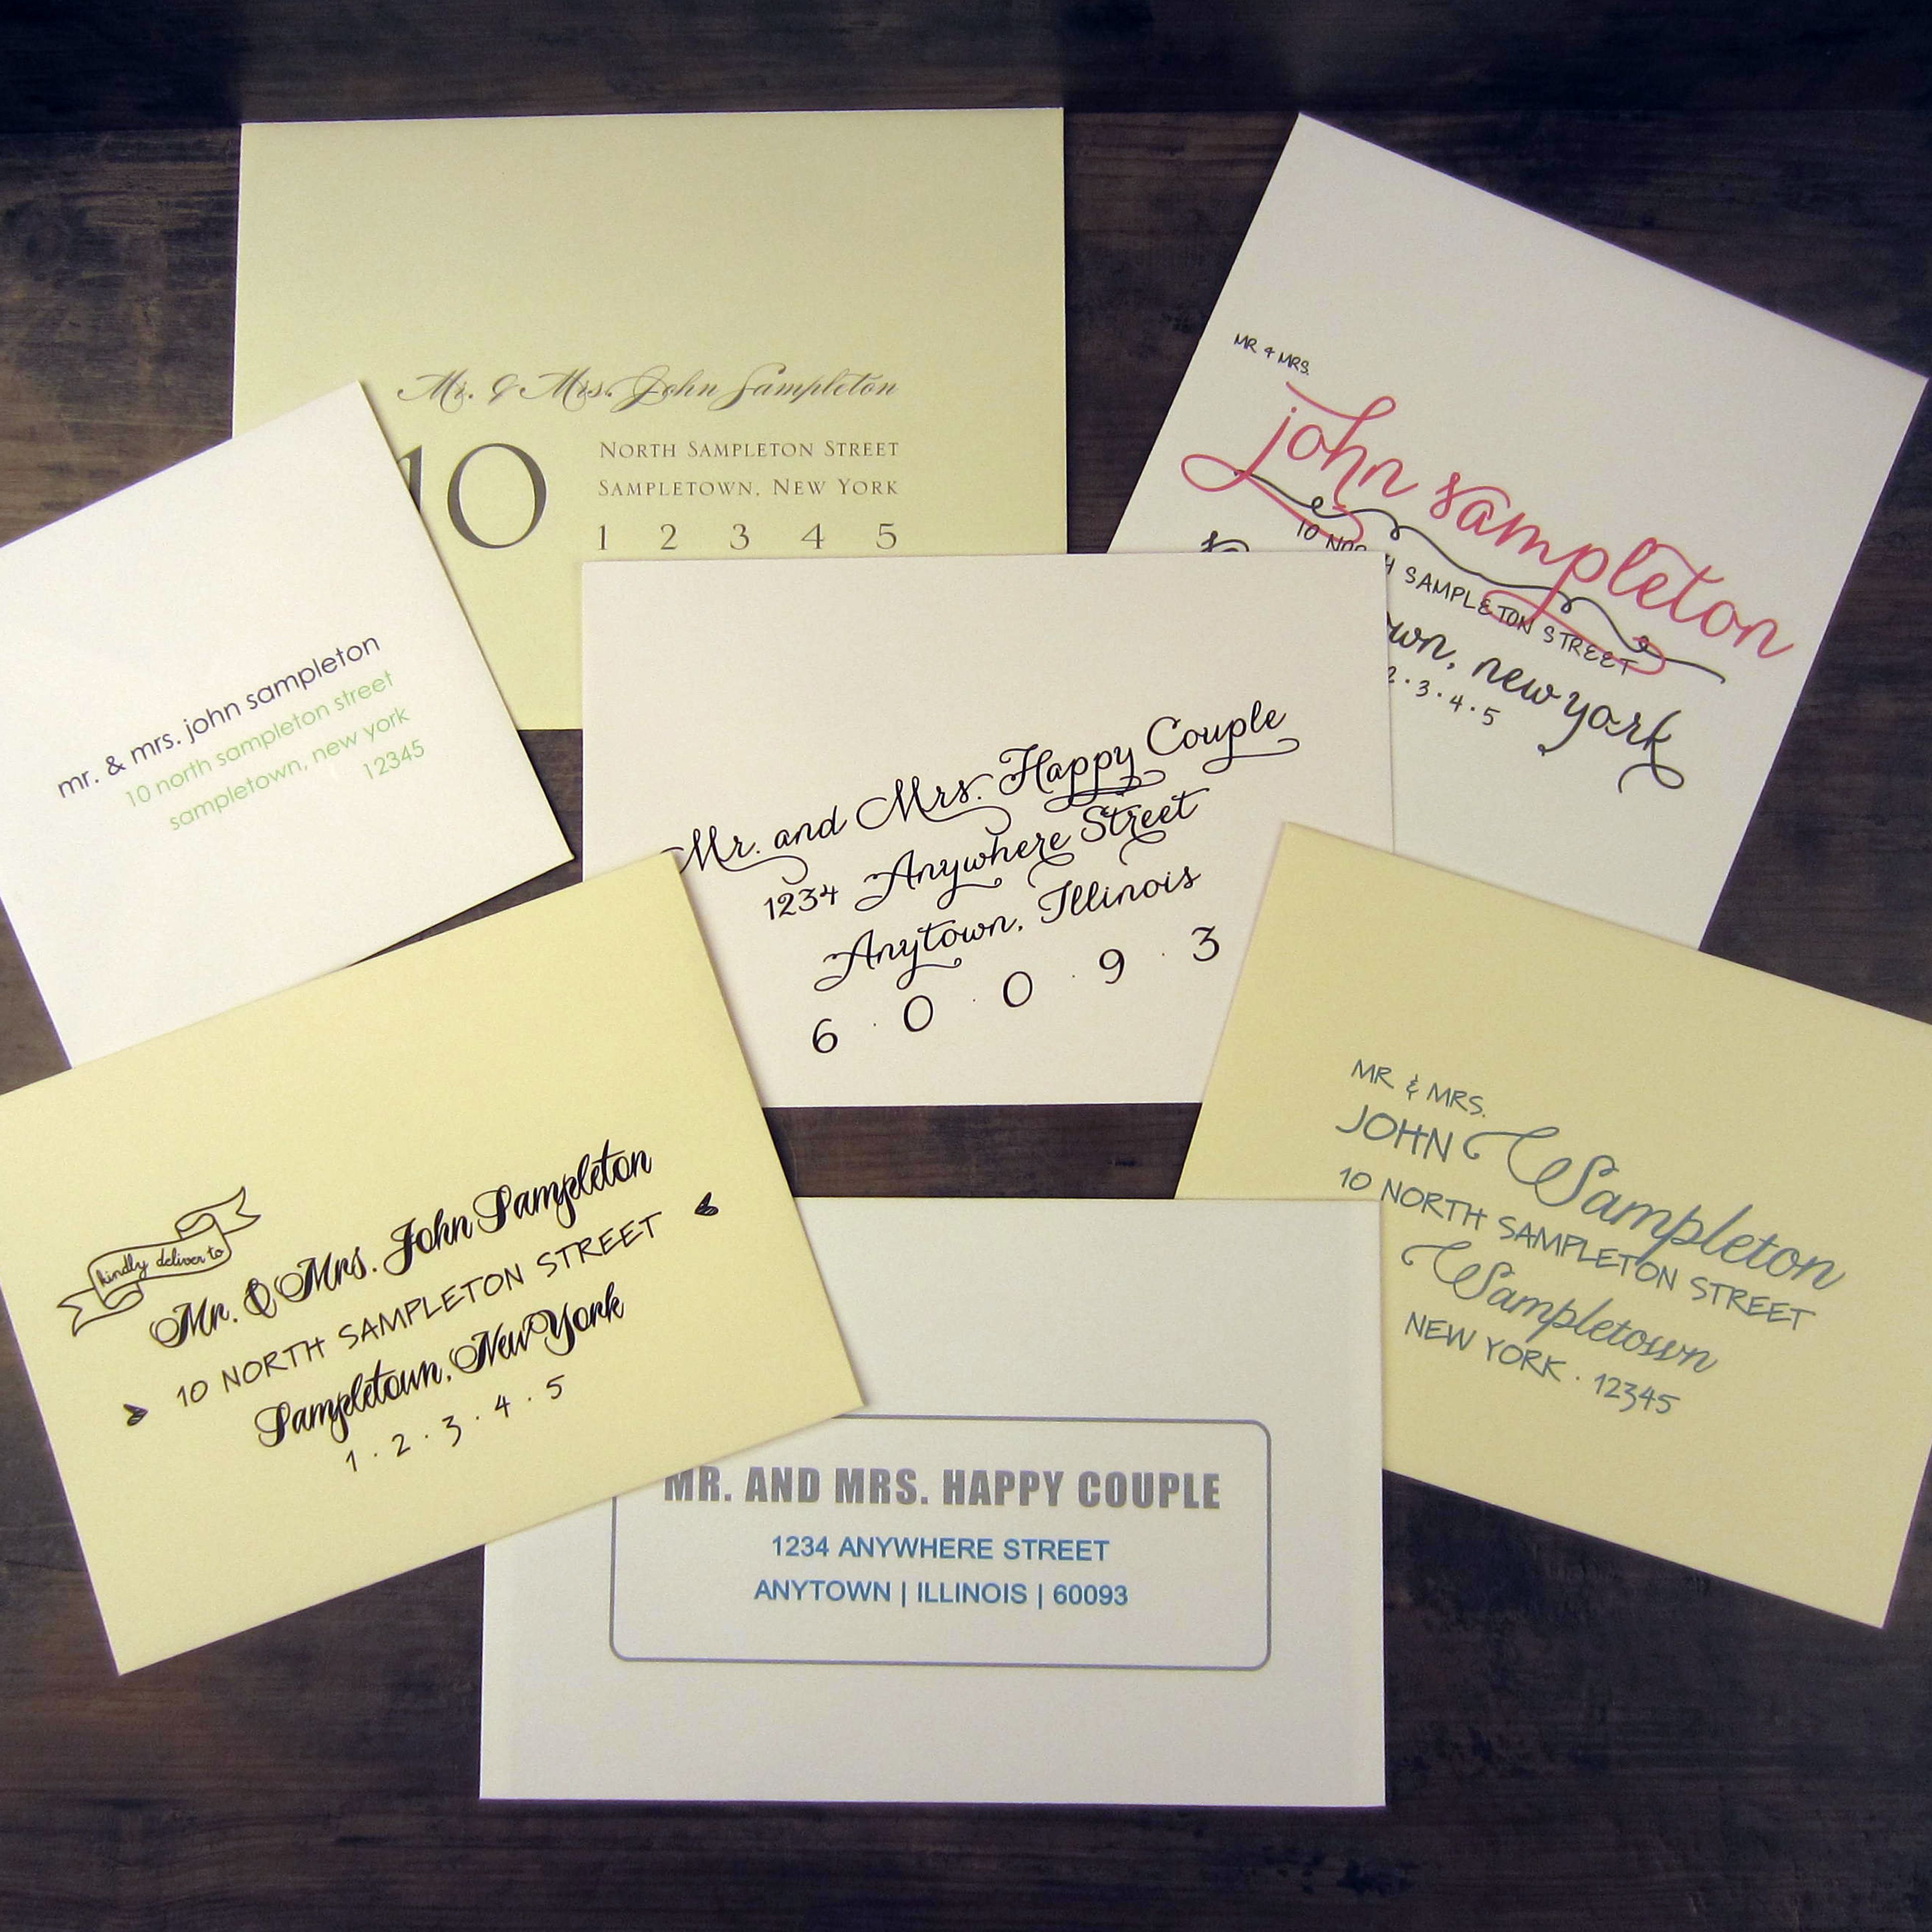 Mr. & Mrs. John Sampleton
10
North Sampleton Street
Sampletown, New York
1 2 3 4 5
MR & MRS.
john sampleton
10 NORTH SAMPLETON STREET
wn, new york
2 · 3 · 4 · 5
mr. & mrs. john sampleton
10 north sampleton street
sampletown, new york
12345
Mr. and Mrs. Happy Couple
1234 Anywhere Street
Anytown, Illinois
6 · 0 · 0 · 9 · 3
kindly deliver to
Mr. & Mrs. John Sampleton
10 NORTH SAMPLETON STREET
Sampletown, New York
1 · 2 · 3 · 4 · 5
MR & MRS.
JOHN Sampleton
10 NORTH SAMPLETON STREET
Sampletown
NEW YORK · 12345
MR. AND MRS. HAPPY COUPLE
1234 ANYWHERE STREET
ANYTOWN | ILLINOIS | 60093